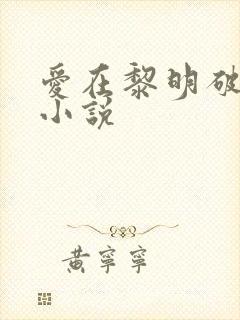 愛在黎明破
小説
黃寧寧